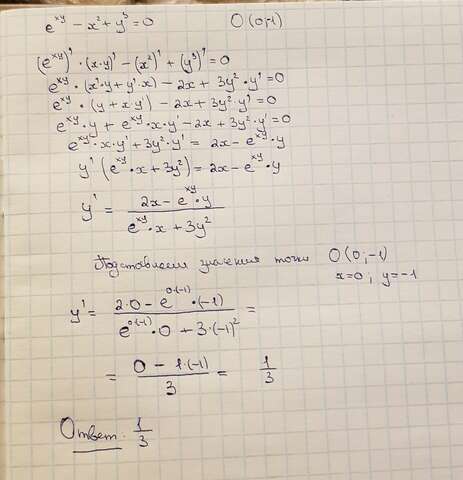 e^{xy} - x² + y³ = 0 O(0;-1)
(e^{xy})' · (x·y)' - (x²)' + (y³)' = 0
e^{xy} · (x'·y + y'·x) - 2x + 3y² · y' = 0
e^{xy} · (y + x·y') - 2x + 3y² · y' = 0
e^{xy} · y + e^{xy} · x · y' - 2x + 3y² · y' = 0
e^{xy} · x · y' + 3y² · y' = 2x - e^{xy} · y
y' (e^{xy} · x + 3y²) = 2x - e^{xy} · y
y' = \frac{2x - e^{xy} · y}{e^{xy} · x + 3y²}
Подставляем значения точки O(0;-1)
x=0; y=-1
y' = \frac{2·0 - e^{0·(-1)} · (-1)}{e^{0·(-1)} · 0 + 3·(-1)²} =
= \frac{0 - 1·(-1)}{3} = \frac{1}{3}
Ответ: \frac{1}{3}